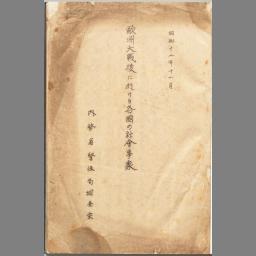 昭和十一年十一月
欧洲大戦後に於ける各国の社会事象
内務省警保局図書室